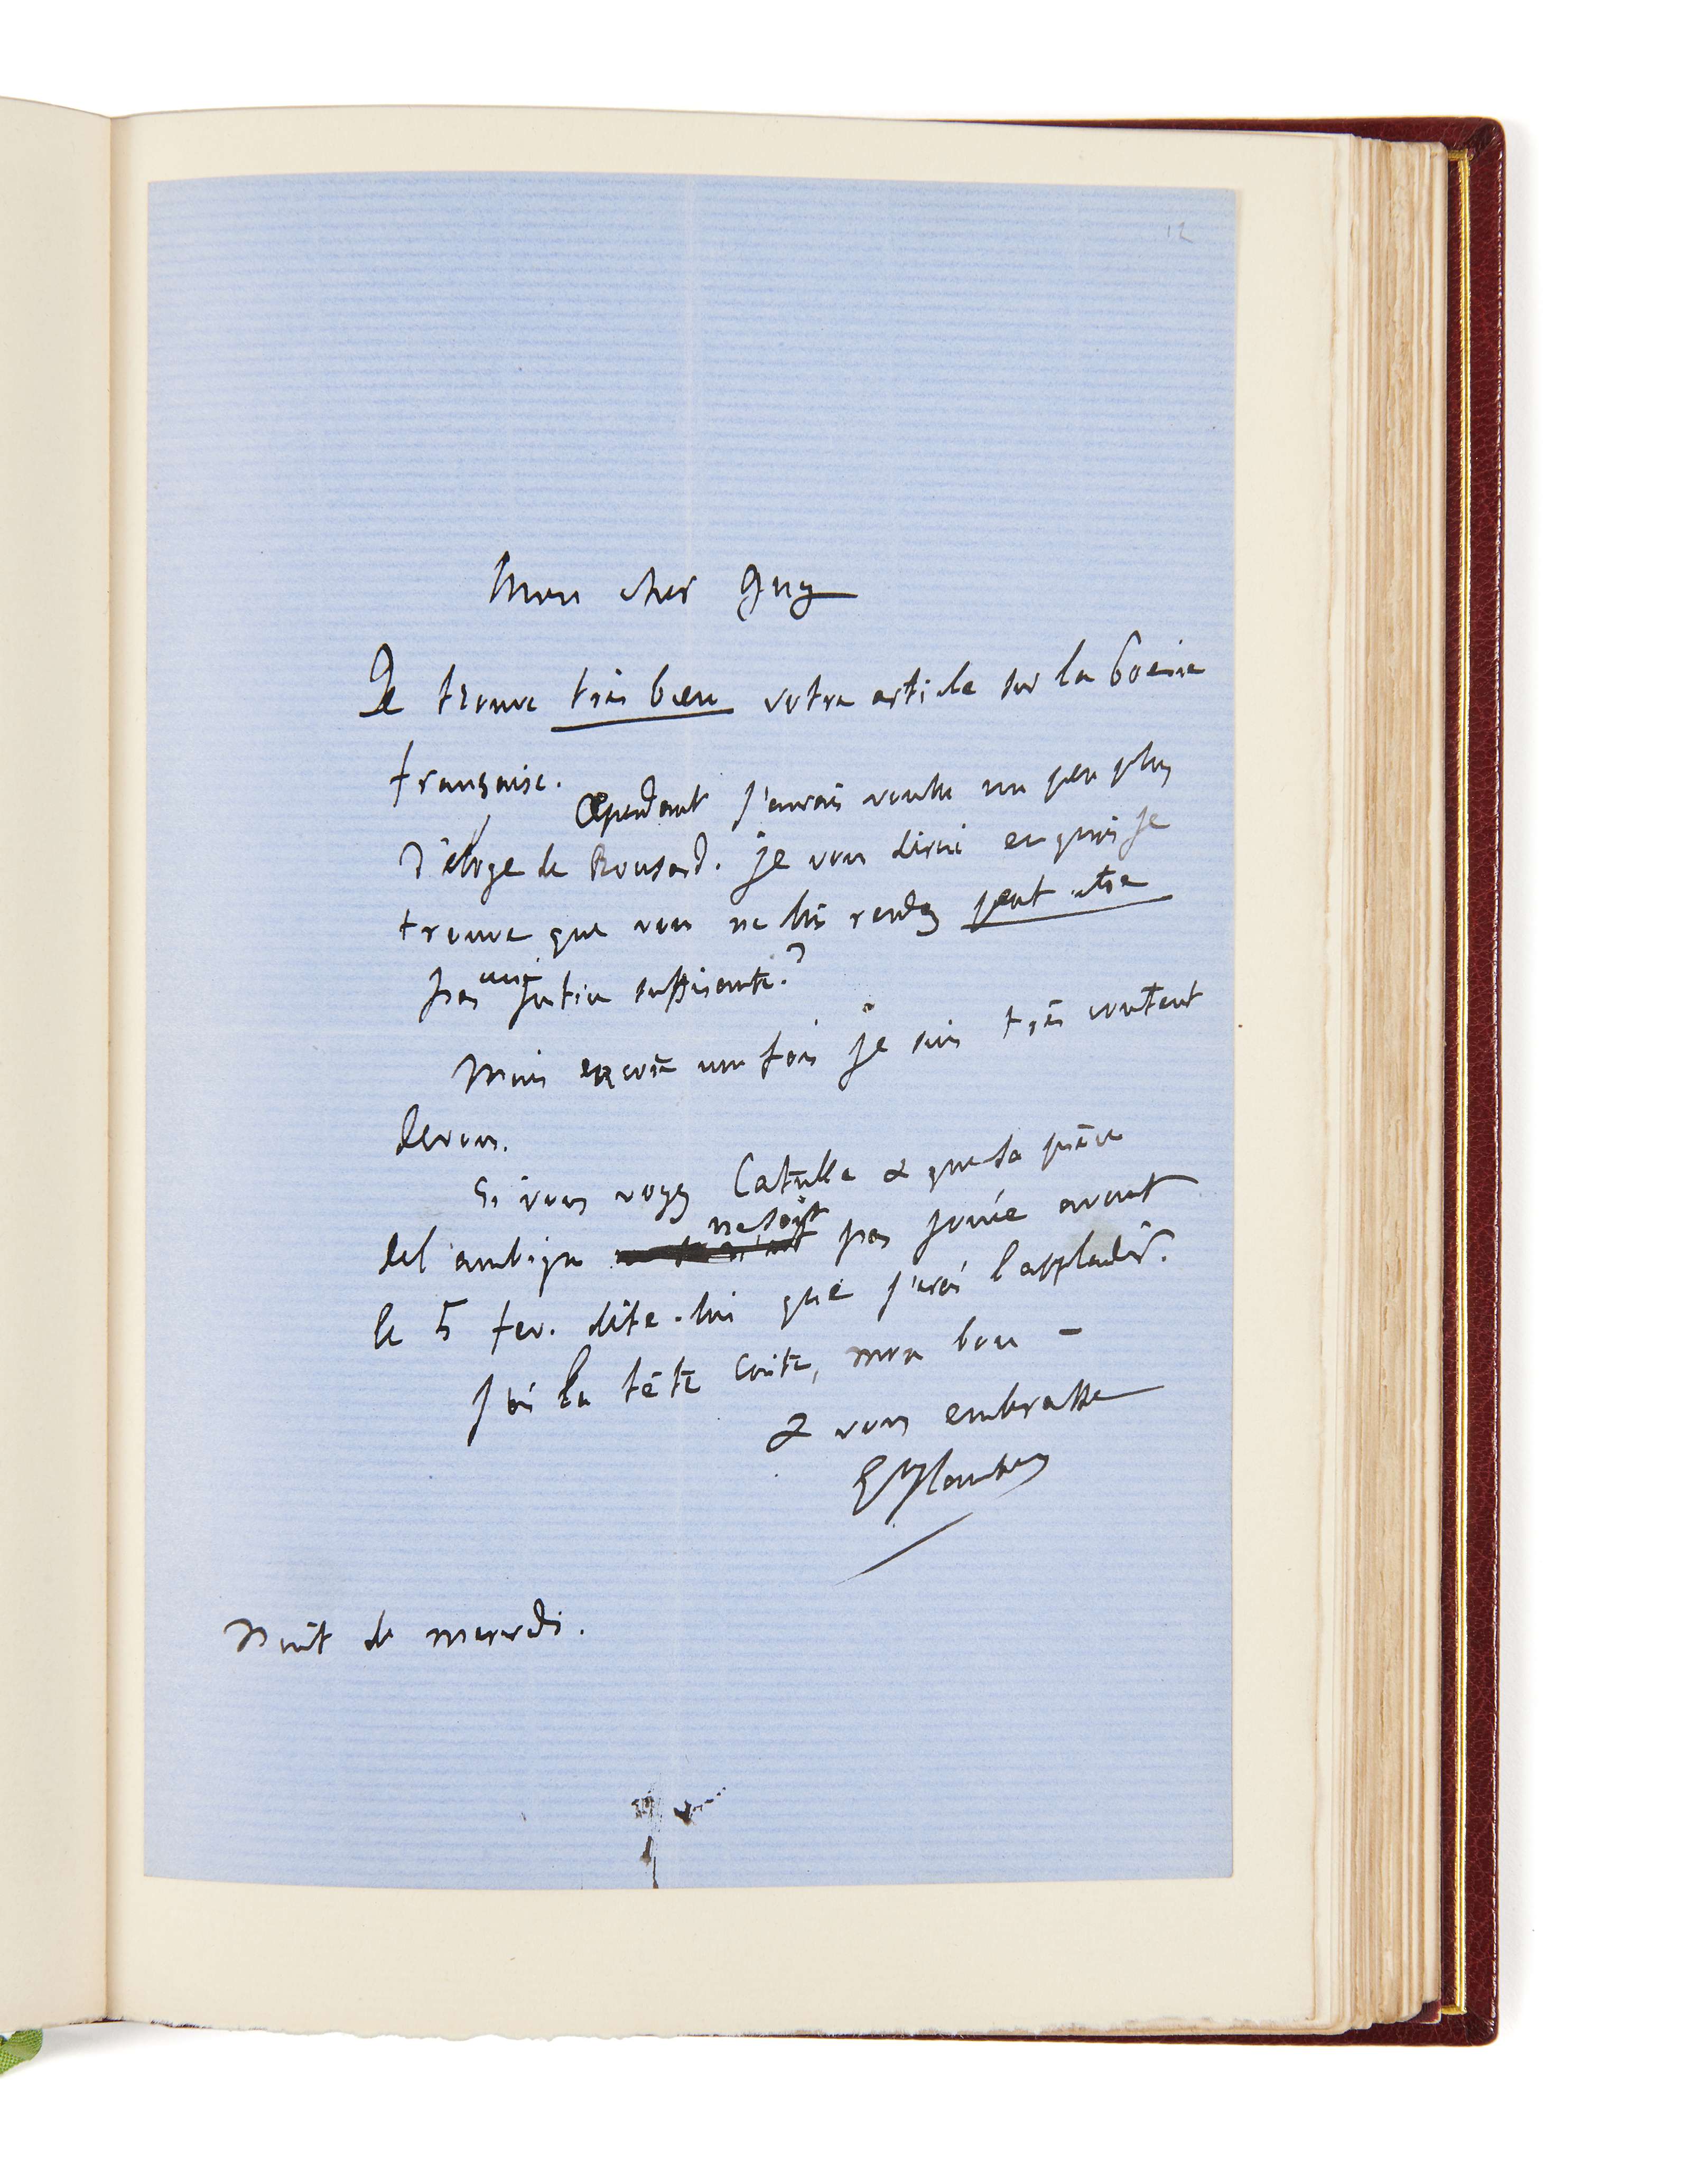 12
Mon cher Guy
Je trouve très bien votre article sur la Poésie
française. Cependant j'aurais voulu un peu plus
d'éloge de Ronsard. je vous dirai en quoi je
trouve que vous ne lui rendez peut être
pas une justice suffisante?
Mais encore une fois je suis très content
de vous.
Si vous voyez Catulle & que sa pièce
de l'ambigu ne soit pas jouée avant
le 5 fev. dite-lui que j'irai l'applaudir.
J'ai la tête cuite, mon bon –
& vous embrasse
GveFlaubert
Nuit de mercredi.